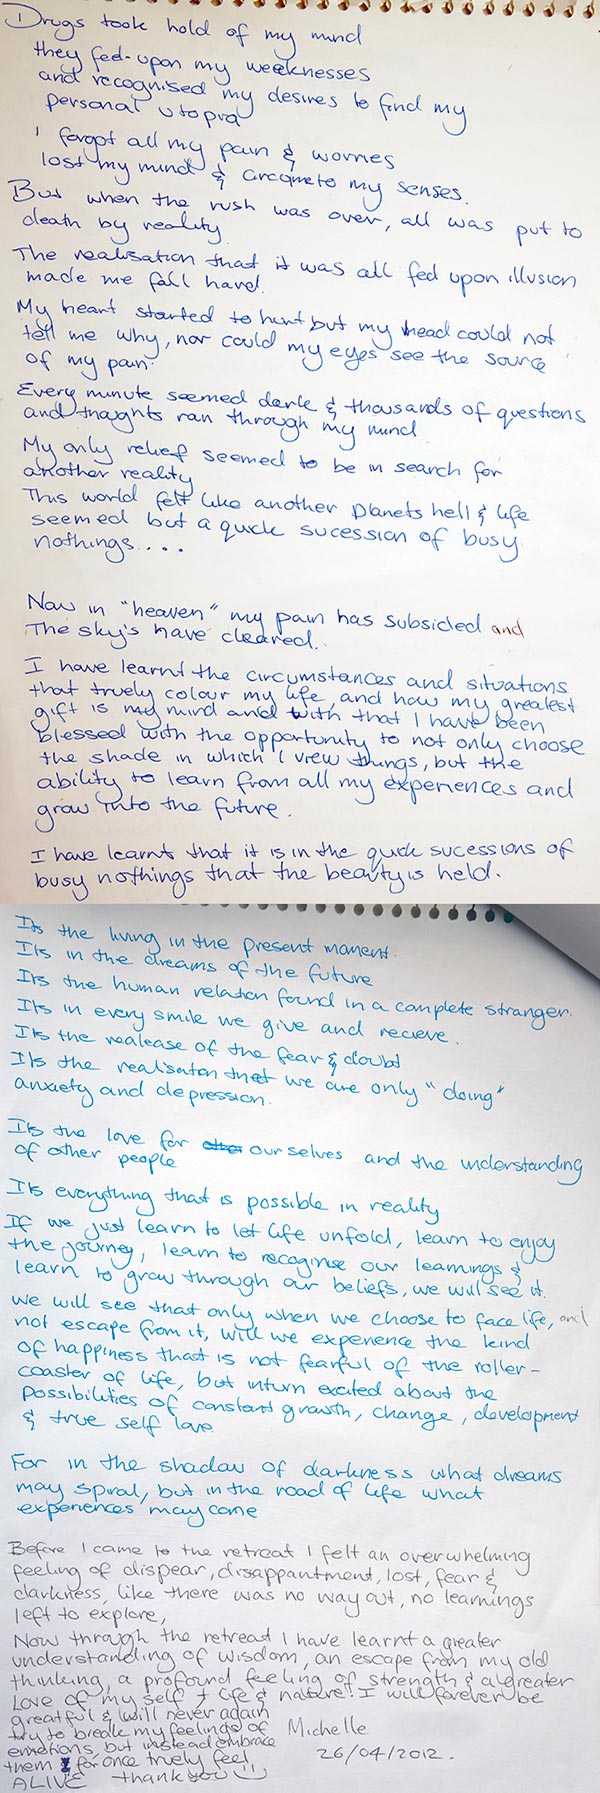 Drugs took hold of my mind
they fed-upon my weeknesses
and recognised my desires to find my
personal utopia
I forgot all my pain & worries
lost my mind & arcameto my senses.
But when the rush was over, all was put to
death by reality
The realisation that it was all fed upon illusion
made me fall hard.
My heart started to hurt but my head could not
tell me why, nor could my eyes see the source
of my pain.
Every minute seemed dark & thousands of questions
and thoughts ran through my mind
My only relief seemed to be in search for
another reality
This world felt like another planets hell & life
seemed but a quick sucession of busy
nothings....
Now in "heaven" my pain has subsided and
The sky's have cleared..
I have learnt the circumstances and situations
that truely colour my life, and how my greatest
gift is my mind and with that I have been
blessed with the opportunity to not only choose
the shade in which I view things, but the
ability to learn from all my experiences and
grow into the future.
I have learnt that it is in the quick sucessions of
busy nothings that the beauty is held.
Its the living in the present moment.
Its in the dreams of the future
Its the human relation found in a complete stranger.
Its in every smile we give and recieve.
Its the realease of the fear & doubt
Its the realisaton that we are only "doing"
anxiety and depression.
Its the love for ourselves and the understanding
of other people
Its everything that is possible in reality
If we just learn to let life unfold, learn to enjoy
the journey, learn to recognise our learnings &
learn to grow through our beliefs, we will see it.
we will see that only when we choose to face life, and
not escape from it, will we experience the kind
of happiness that is not fearful of the roller-
coaster of life, but inturn excited about the
possibilities of constant growth, change, development
& true self love
For in the shadow of darkness what dreams
may spiral, but in the road of life what
experiences may come
Before I came to the retreat I felt an overwhelming
feeling of dispear, dissappantment, lost, fear &
darkness, like there was no way out, no learnings
left to explore,
Now through the retreat I have learnt a greater
understanding of wisdom, an escape from my old
thinking, a profound feeling of strength & a greater
Love of my self + life & nature. I will forever be
greatful & will never again
try to break my feelings of
emotions, but instead embrace
them & for once truely feel
ALIVE thank you
Michelle
26/04/2012.